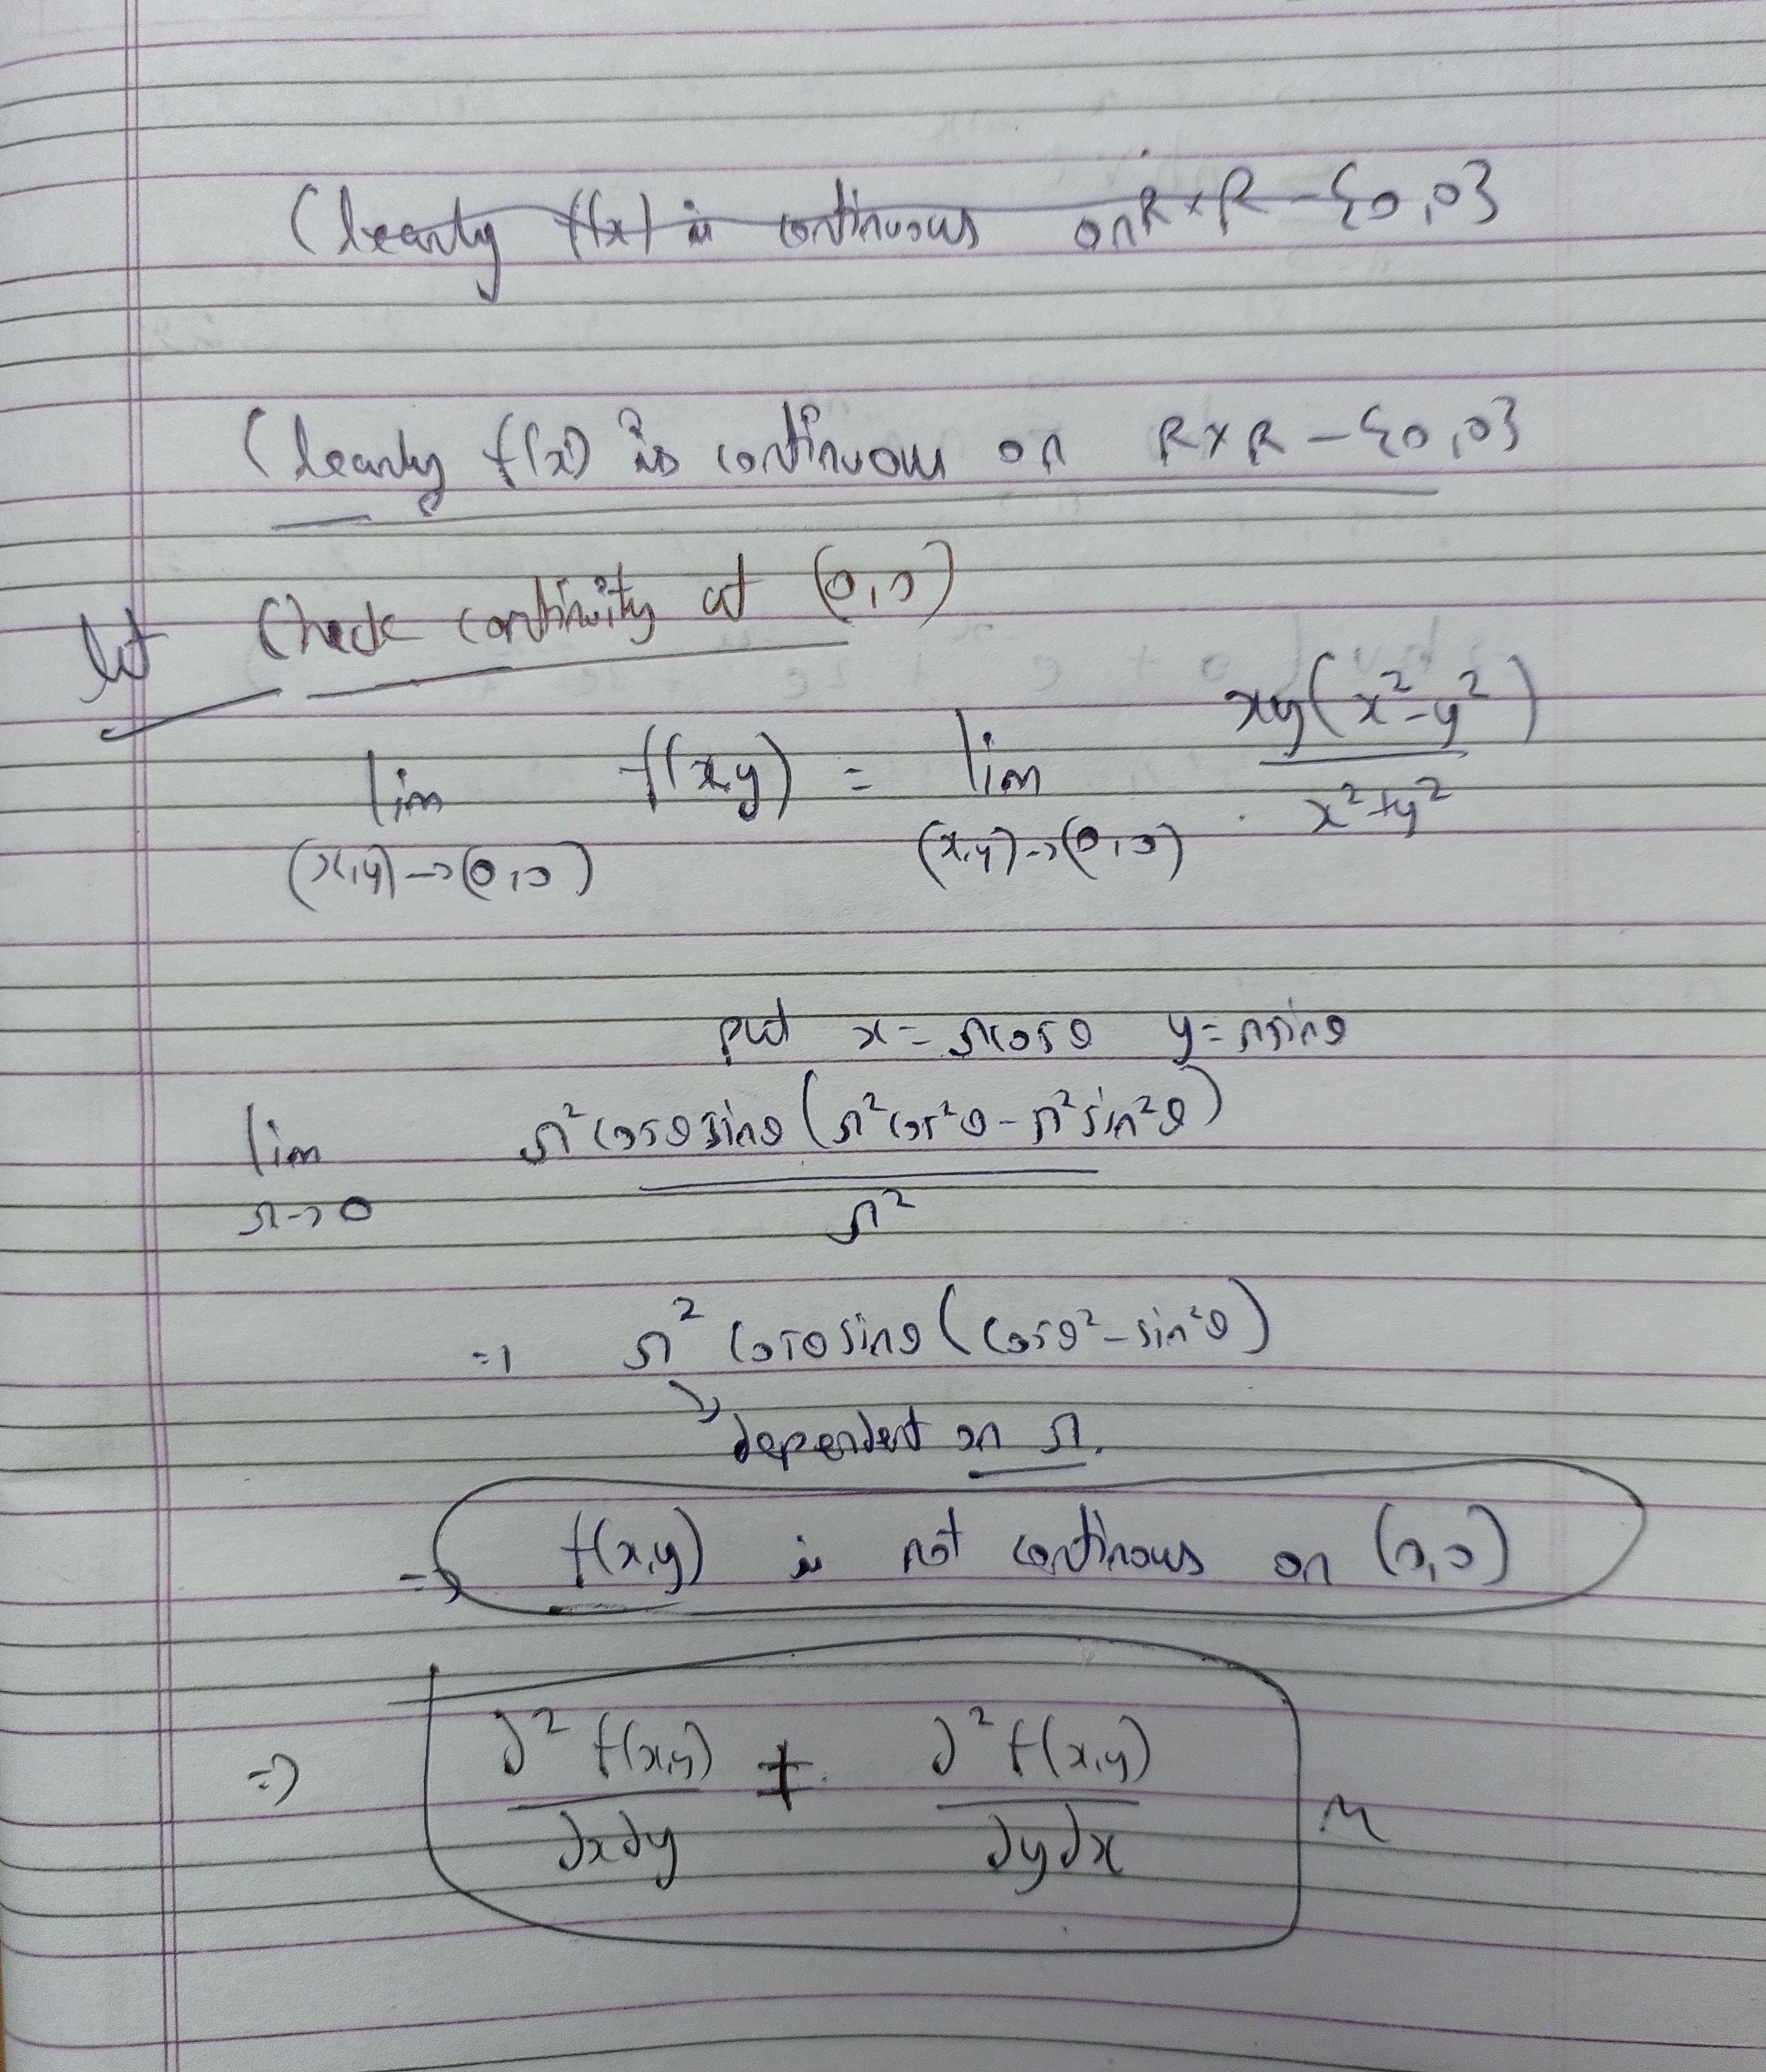 Clearly f(x) is continuous on R×R - {0,0}
Clearly f(x) is continuous on R×R - {0,0}
let Check continuity at (0,0)
lim f(x,y) = lim xy(x²-y²)
(x,y)→(0,0) (x,y)→(0,0) x²+y²
put x = rcosθ y = rsinθ
lim r²cosθsinθ(r²cos²θ - r²sin²θ)
r→0 r²
⇒ r² cosθsinθ(cosθ² - sin²θ)
dependent on r.
⇒ f(x,y) is not continous on (0,0)
⇒ ∂²f(x,y) ≠ ∂²f(x,y)
∂x∂y ∂y∂x